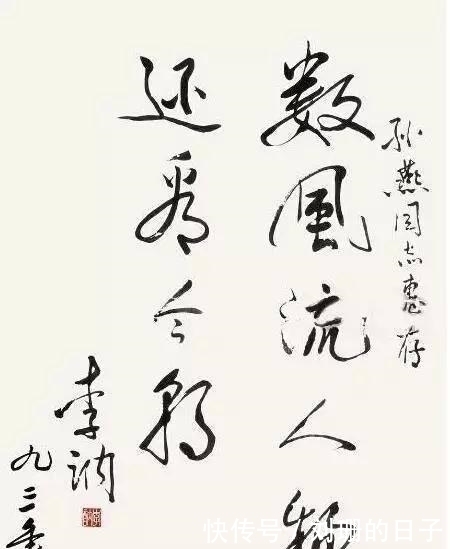 孙燕同志惠存
数风流人物
还看今朝
李讷
九二年
快传号/刘珊的日子